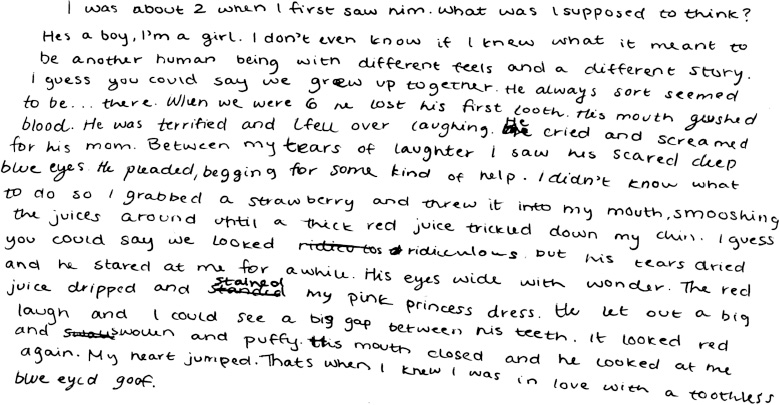 I was about 2 when I first saw him. What was I supposed to think?
Hes a boy, I'm a girl. I don't even know if I knew what it meant to
be another human being with different feels and a different story.
I guess you could say we grew up together. He always sort seemed
to be... there. When we were 6 he lost his first tooth. His mouth gushed
blood. He was terrified and I fell over laughing. He cried and screamed
for his mom. Between my tears of laughter I saw his scared deep
blue eyes. He pleaded, begging for some kind of help. I didn't know what
to do so I grabbed a strawberry and threw it into my mouth, smooshing
the juices around until a thick red juice trickled down my chin. I guess
you could say we looked ridiculous. but his tears dried
and he stared at me for awhile. His eyes wide with wonder. The red
juice dripped and stained my pink princess dress. He let out a big
laugh and I could see a big gap between his teeth. It looked red
and swollen and puffy. His mouth closed and he looked at me
again. My heart jumped. Thats when I knew I was in love with a toothless
blue eyed goof.